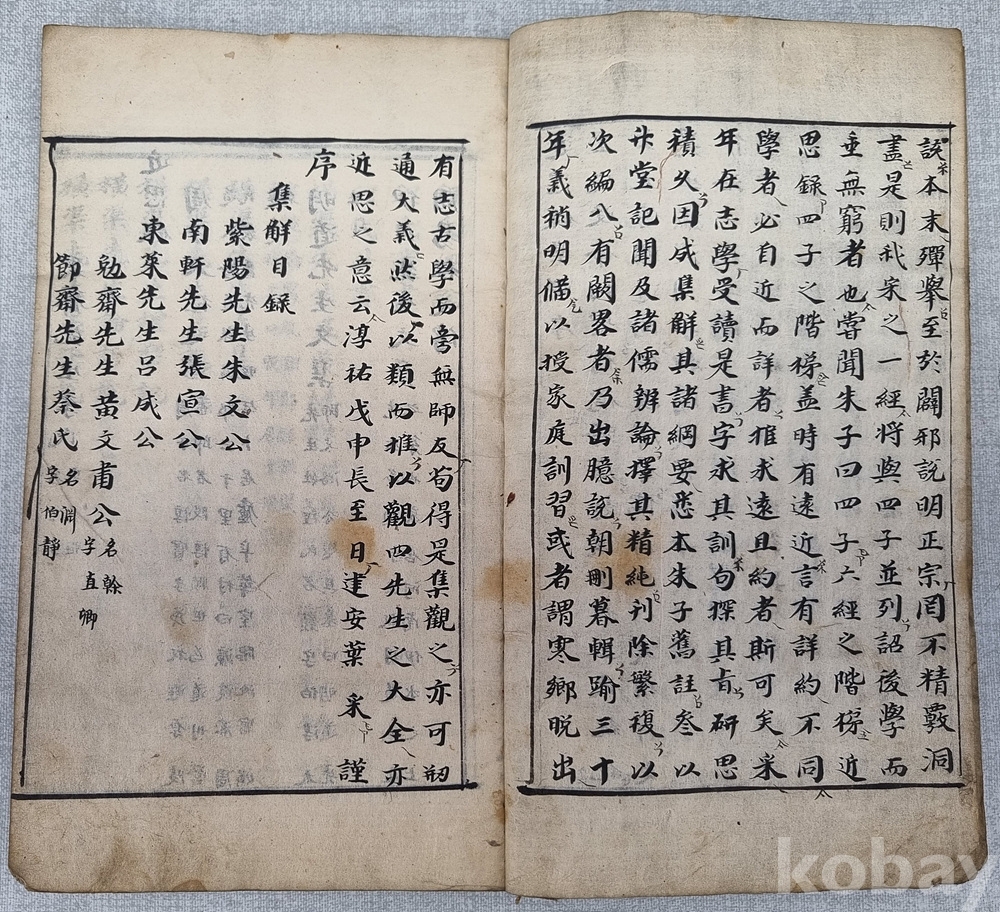 該本末殫擧至於闢邪說明正宗罔不精覈洞
盡是則我宋之一經將與四子並列詔後學而
垂無窮者也嘗聞朱子曰四子六經之階梯近
思錄四子之階梯盖時有遠近言有詳約不同
學者必自近而詳者推求遠且約者斯可矣采
年在志學受讀是書字求其訓句探其旨研思
積久因成集解其諸綱要悉本朱子舊註叅以
升堂記聞及諸儒辨論擇其精純刊除繁複以
次編入有闕畧者乃出臆說朝刪暮輯踰三十
年義稍明僃以授家庭訓習或者謂寒鄉晚出
有志古學而旁無師友苟得是集觀之亦可刱
通大義然後以類而推以觀四先生之大全亦
近思之意云淳祐戊申長至日建安葉采謹
序
集解目錄
紫陽先生朱文公
南軒先生張宣公
東萊先生呂成公
勉齋先生黃文肅公 名榦 字直卿
節齋先生蔡氏 名淵 字伯靜
kobay